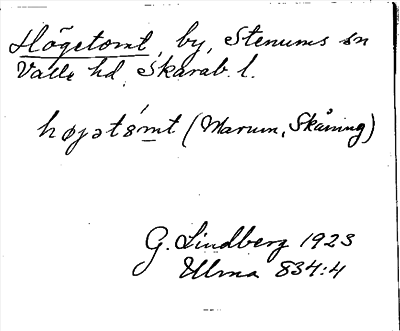 Högetomt, by, Stenums sn
Valle hd, Skarab. l.
(Marum, Skåning)
G. Lindberg 1923
Ulma 834:4